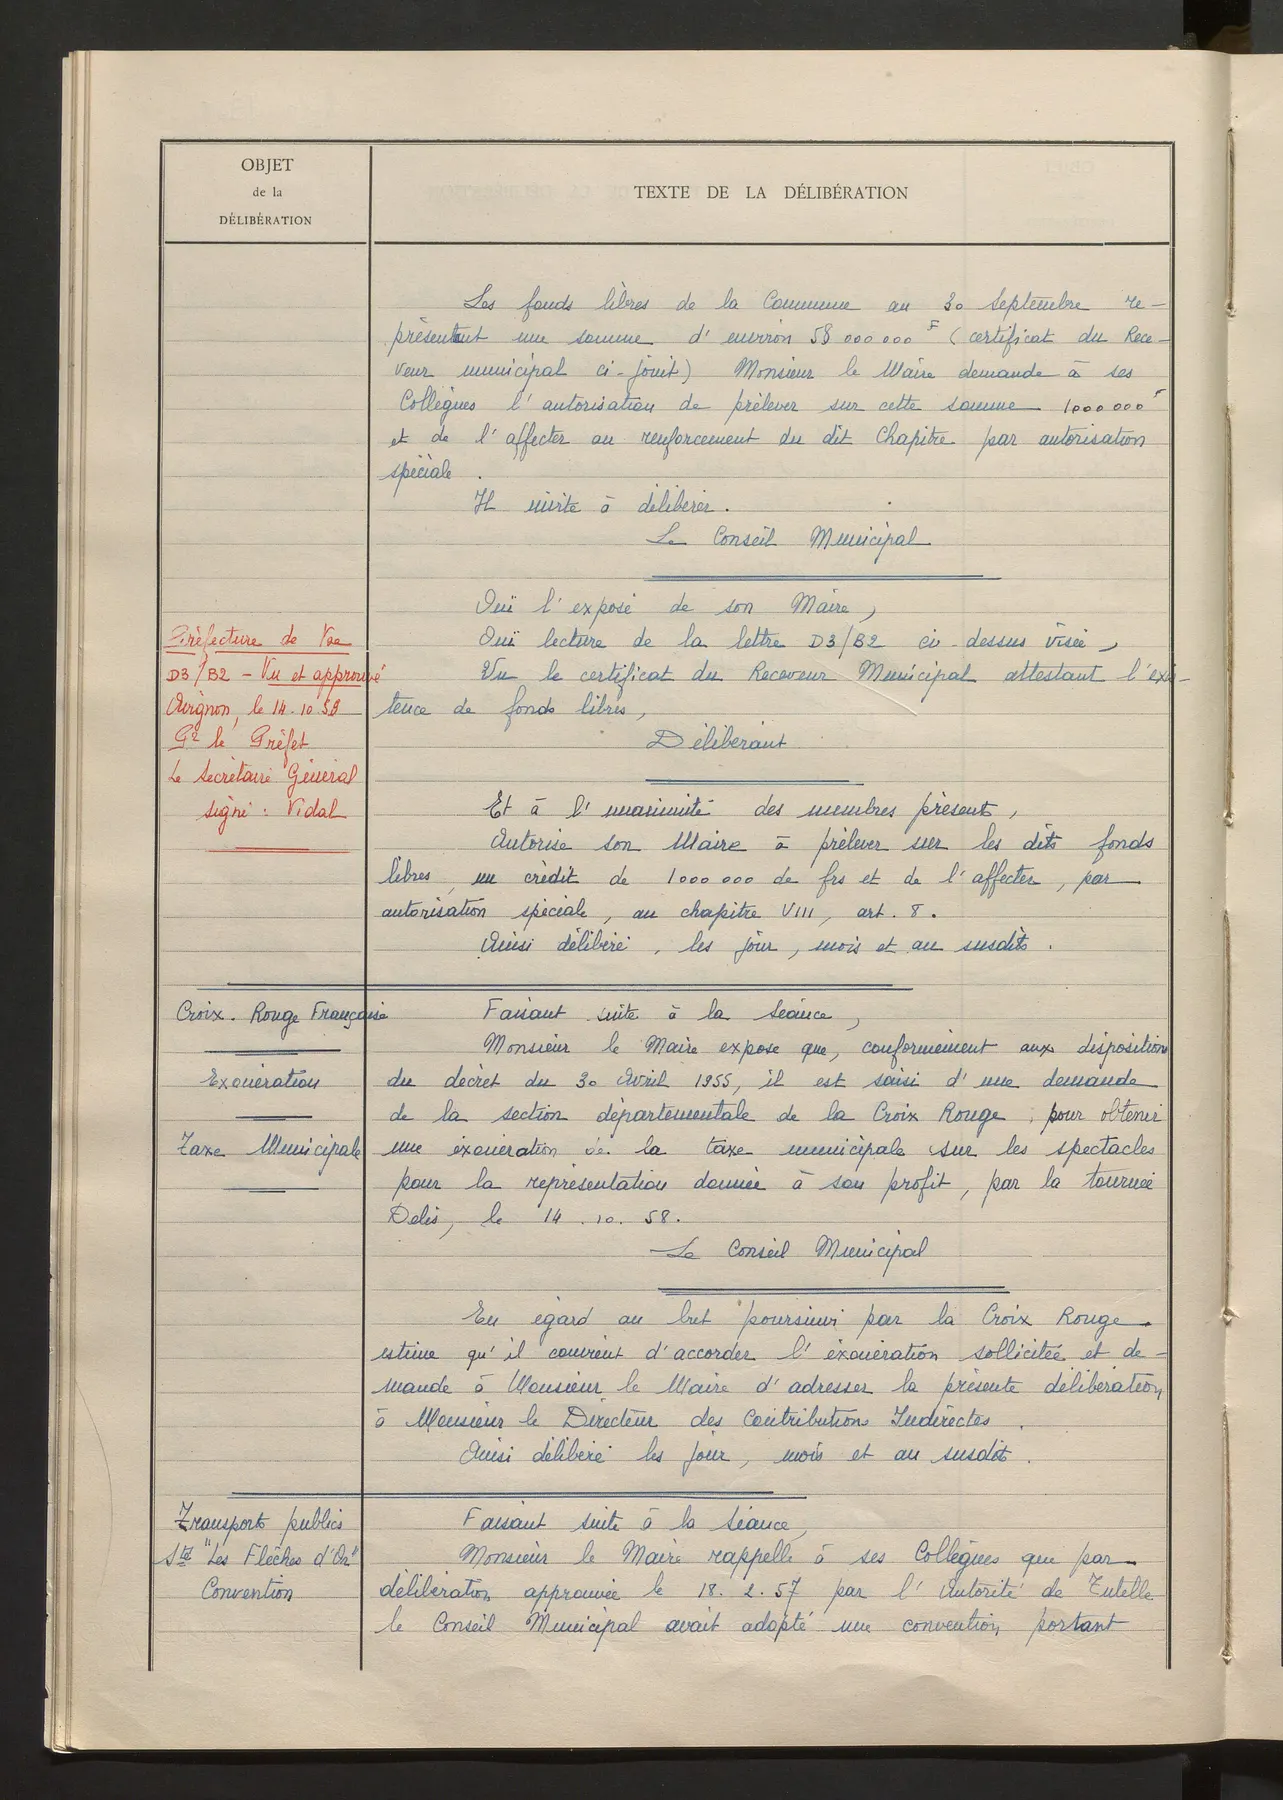 OBJET
de la
DÉLIBÉRATION
TEXTE DE LA DÉLIBÉRATION
Les fonds libres de la Commune au 30 Septembre re-
présentent une somme d'environ 58 000 000 F (certificat du Rece-
veur municipal ci-joint) Monsieur le Maire demande à ses
Collègues l'autorisation de prélever sur cette somme 1 000 000 F
et de l'affecter au renforcement du dit Chapitre par autorisation
spéciale.
Il invite à délibérer.
Le Conseil Municipal
Ouï l'exposé de son Maire,
Ouï lecture de la lettre D3/B2 ci-dessus visée,
Vu le certificat du Receveur Municipal attestant l'exis-
tence de fonds libres,
Délibérant
Et à l'unanimité des membres présents,
Autorise son Maire à prélever sur les dits fonds
libres, un crédit de 1 000 000 de frs et de l'affecter, par
autorisation spéciale, au chapitre VIII, art. 8.
Ainsi délibéré, les jour, mois et an susdits.
Préfecture de Vse
D3/B2 - Vu et approuvé
Avignon, le 14.10.58
Pr le Préfet
Le Secrétaire Général
signé : Vidal
Croix-Rouge Française
Exonération
Taxe Municipale
Faisant suite à la séance,
Monsieur le Maire expose que, conformément aux dispositions
du décret du 30 Avril 1955, il est saisi d'une demande
de la section départementale de la Croix Rouge, pour obtenir
une exonération de la taxe municipale sur les spectacles
pour la représentation donnée à son profit, par la tournée
Delis, le 14.10.58.
Le Conseil Municipal
Eu égard au but poursuivi par la Croix Rouge
estime qu'il convient d'accorder l'exonération sollicitée et de-
mande à Monsieur le Maire d'adresser la présente délibération
à Monsieur le Directeur des Contributions Indirectes.
Ainsi délibéré les jour, mois et an susdits.
Transports publics
Sté "Les Flèches d'Or"
Convention
Faisant suite à la séance,
Monsieur le Maire rappelle à ses Collègues que par
délibération approuvée le 18.2.57 par l'Autorité de Tutelle
le Conseil Municipal avait adopté une convention portant